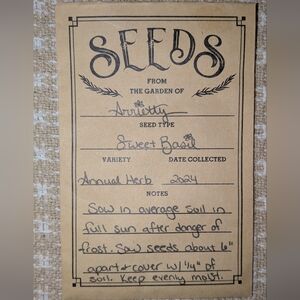 SEEDS
FROM
THE GARDEN OF
Arrietty
SEED TYPE
Sweet Basil
VARIETY DATE COLLECTED
Annual Herb 2024
NOTES
Sow in average soil in
full sun after danger of
frost. Sow seeds about 6"
apart & cover w/ 1/4" of
soil. Keep evenly moist.